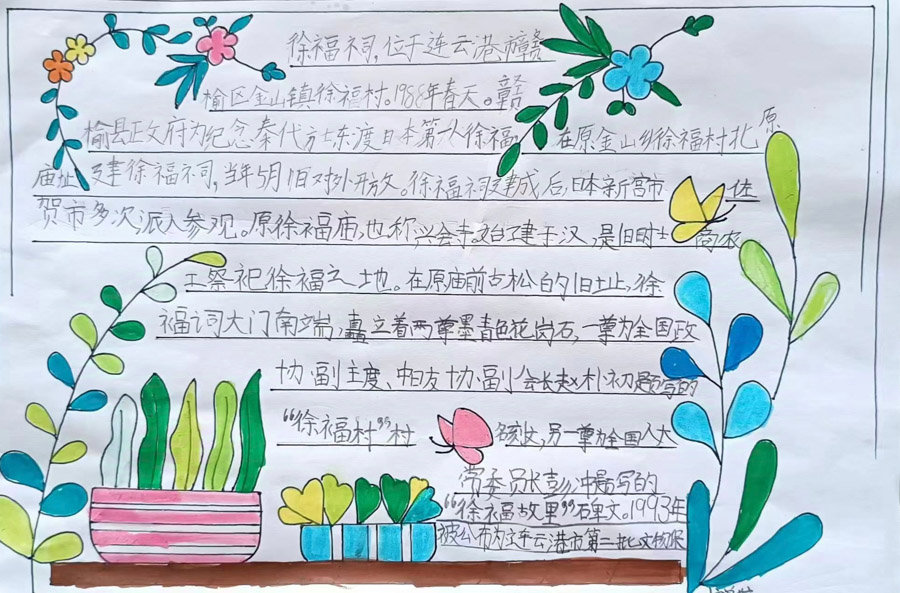 徐福祠，位于连云港市赣
榆区金山镇徐福村。1988年春天。赣
榆县政府为纪念秦代方士东渡日本第一人徐福 在原金山乡徐福村北原
庙址建徐福祠，当年5月1日对外开放。徐福祠建成后，日本新宫市 佐
贺市多次派人参观。原徐福庙，也称兴会寺。始建于汉，是旧时士 商农
工祭祀徐福之地。在原庙前古松的旧址，徐
福词大门南端，矗立着两尊墨青色花岗石，一尊为全国政
协副主度、中日友协副会长赵朴初题写的
“徐福村”村 名碑文，另一尊为全国人大
常委员长彭冲题写的
“徐福故里”碑文。1993年
被公布为连云港市第二批文物保